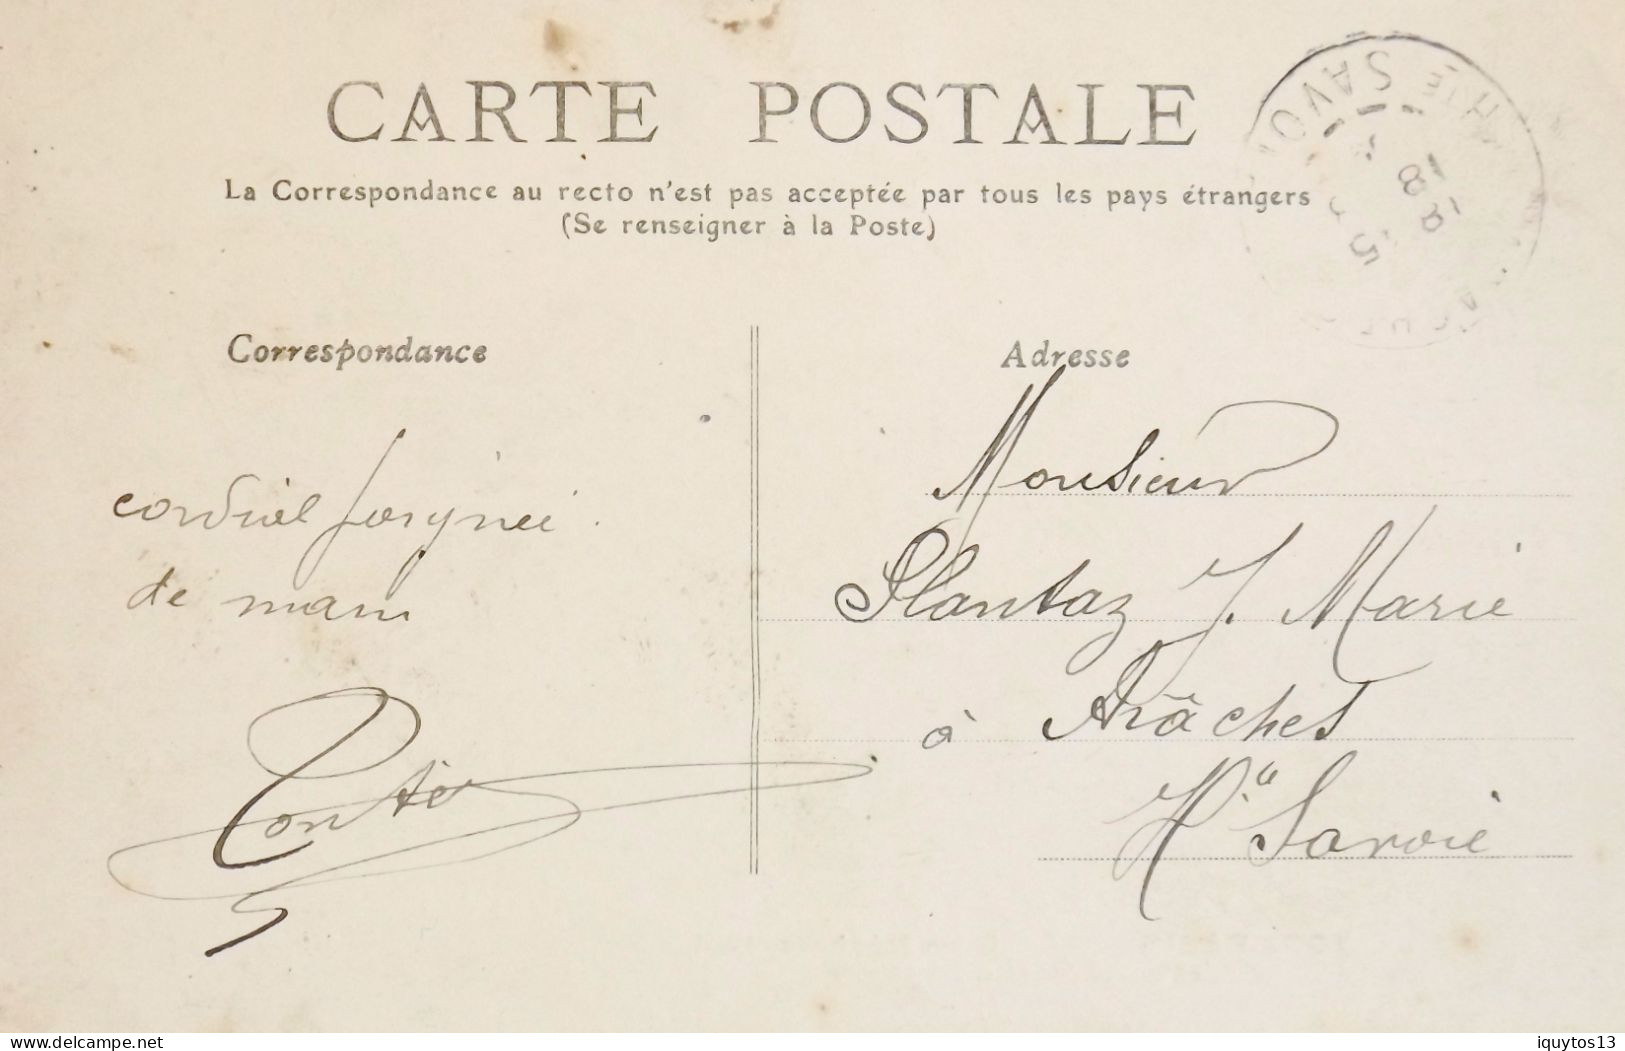 CARTE POSTALE
La Correspondance au recto n'est pas acceptée par tous les pays étrangers
(Se renseigner à la Poste)
Correspondance
Adresse
cordial
de main
Monsieur
Plantaz J. Marie
à Arâches
Hte Savoie
HTE SAVOI
18
5
delcampe.net
iquytos13